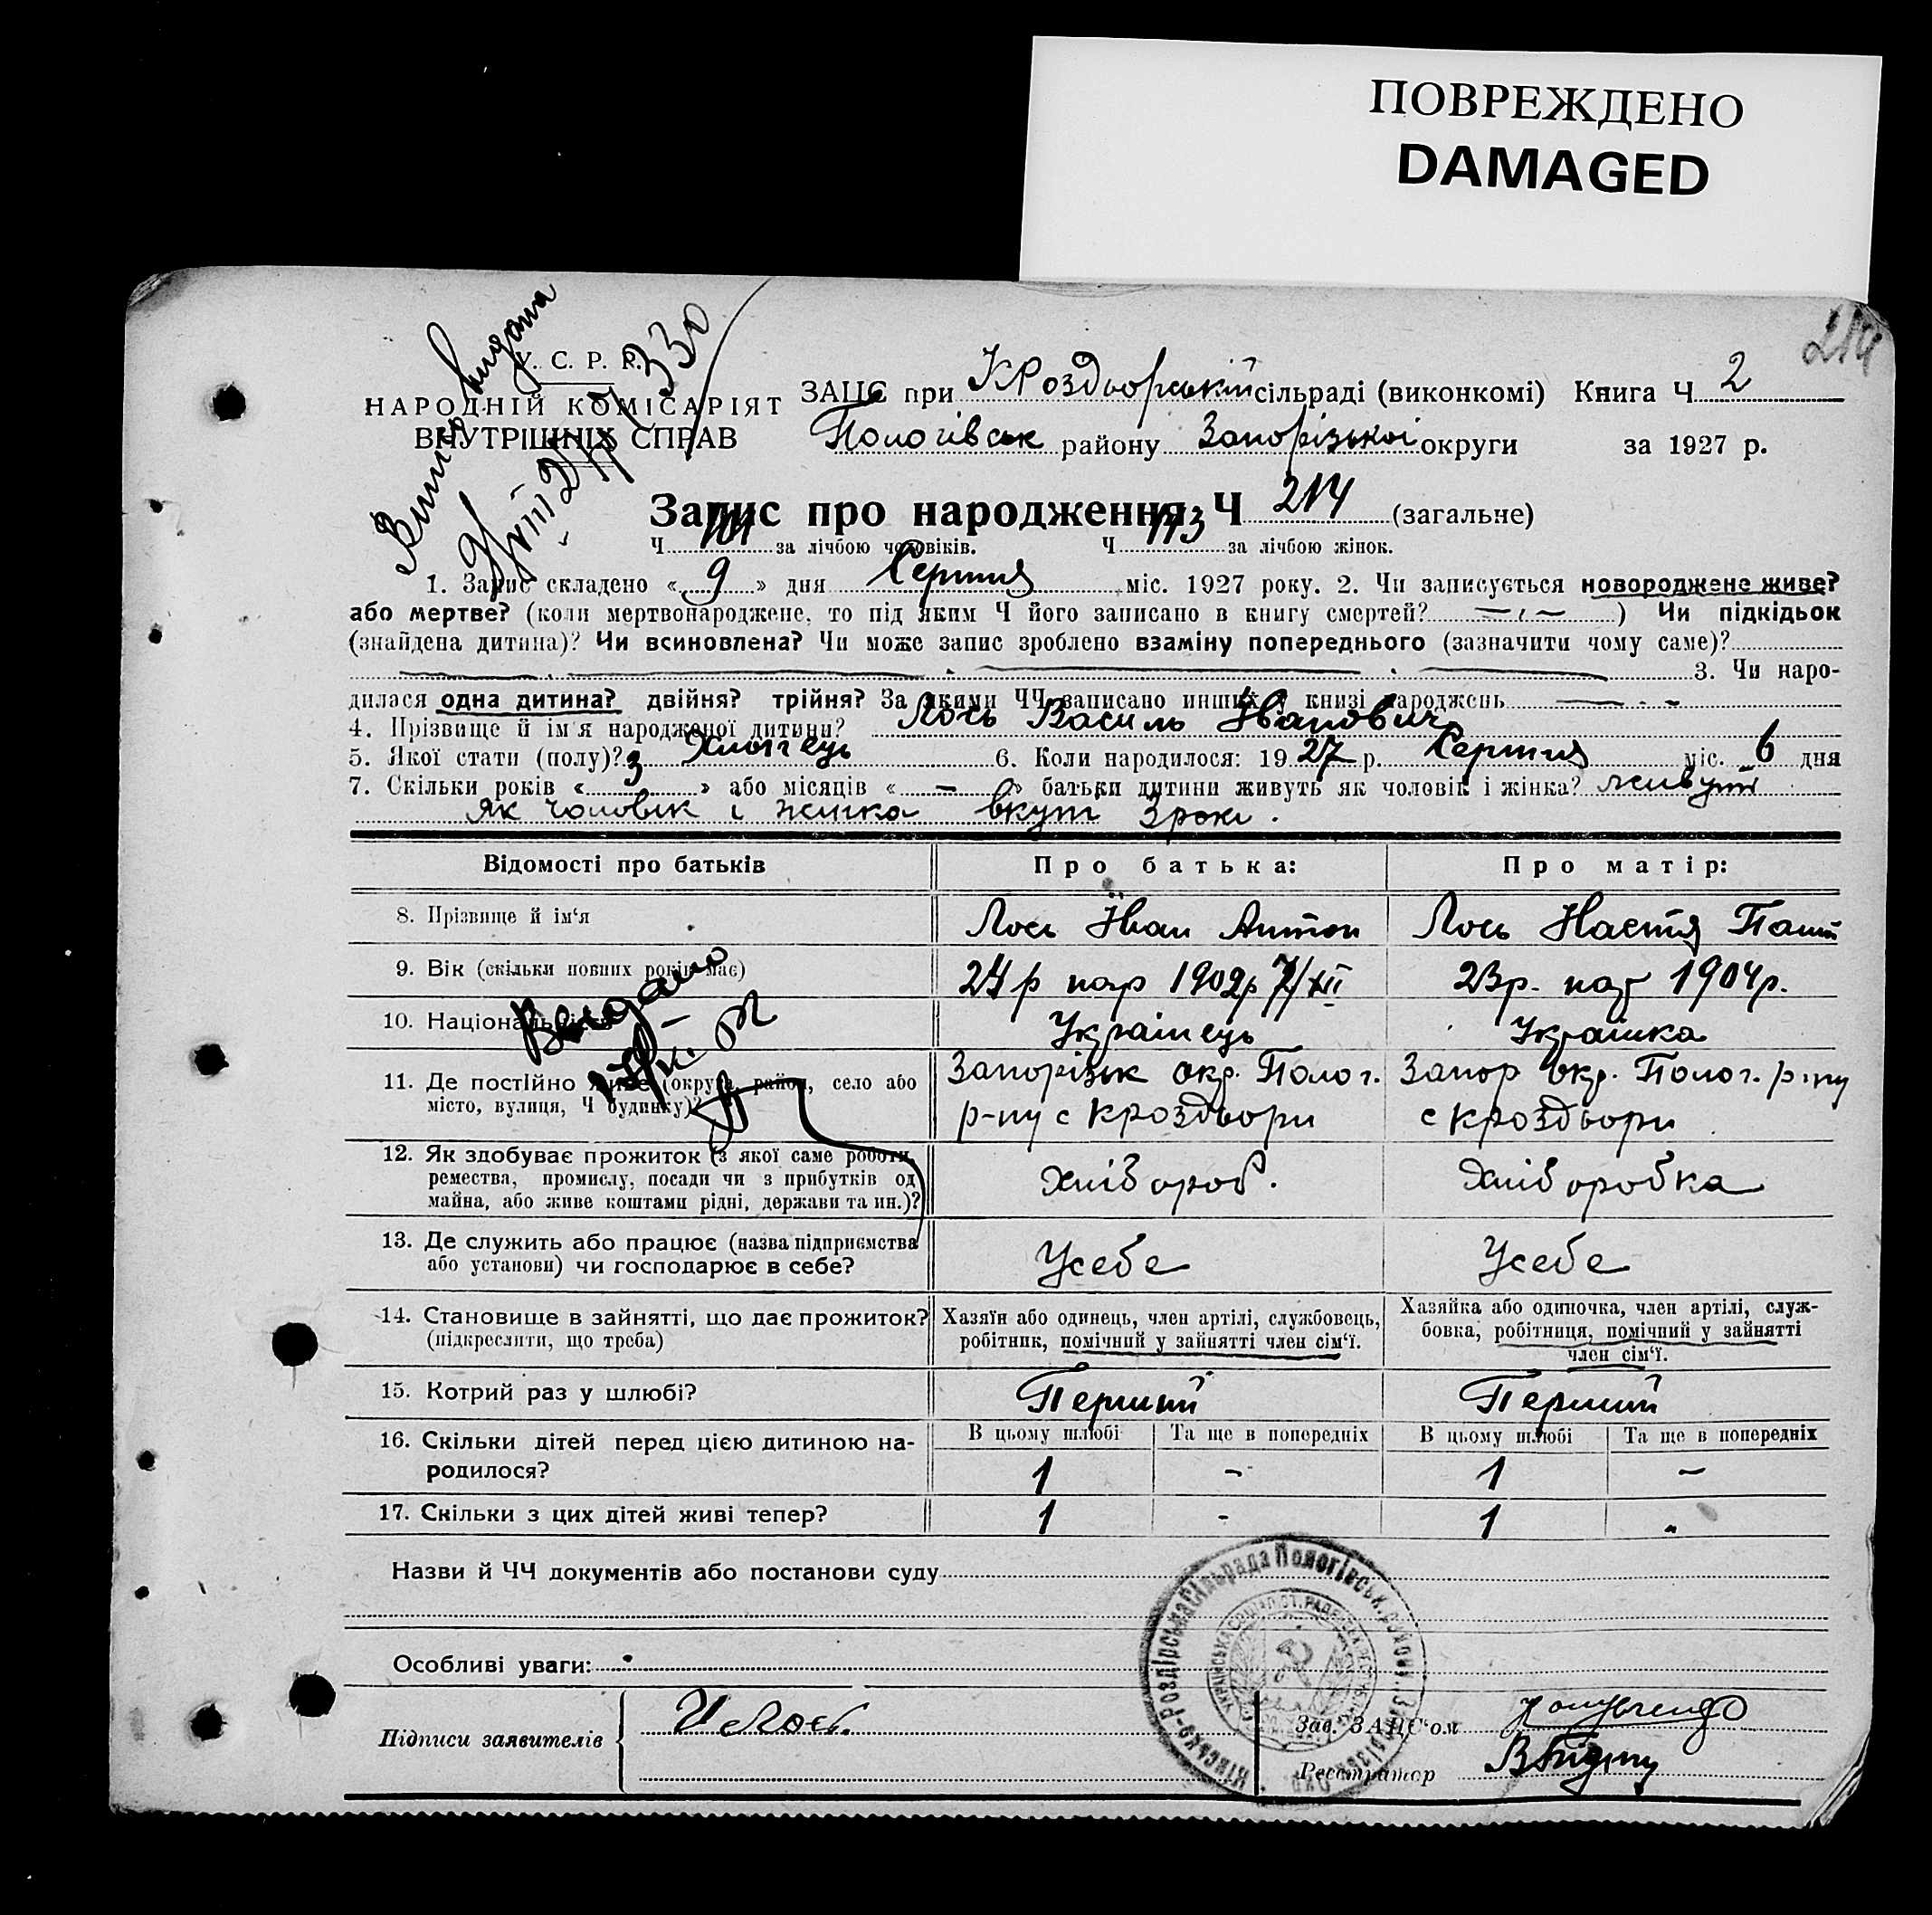 ПОВРЕЖДЕНО
DAMAGED
214
У. С. Р. Р.
НАРОДНІЙ КОМІСАРІЯТ
ВНУТРІШНІХ СПРАВ
Витяг видана
ЗАЦС при КРоздьорській сільраді (виконкомі) Книга Ч 2
Пологівськ району Запорізької округи за 1927 р.
Запис про народження Ч 214 (загальне)
Ч 101 за лічбою чоловіків. Ч 113 за лічбою жінок.
1. Запис складено « 9 » дня Серпня міс. 1927 року. 2. Чи записується новороджене живе?
або мертве? (коли мертвонароджене, то під яким Ч його записано в книгу смертей? ) Чи підкідьок
(знайдена дитина)? Чи всиновлена? Чи може запис зроблено взаміну попереднього (зазначити чому саме)?
3. Чи наро-
дилася одна дитина? двійня? трійня? За якими ЧЧ записано инших у книзі народжень
4. Прізвище й ім'я народженої дитини? Лось Василь Іванович
5. Якої стати (полу)? Хлопець 6. Коли народилося: 1927 р. Серпня міс. 6 дня
7. Скільки років « 3 » або місяців « – » батьки дитини живуть як чоловік і жінка? живуть
як чоловік і жінка вкупі 3 роки.
Відомості про батьків Про батька: Про матір:
8. Прізвище й ім'я Лось Іван Антон Лось Настя
9. Вік (скільки повних років має) 24 р нар 1902р 7/XII 23р. нар 1904р.
Видано
10. Національність Українець Українка
11. Де постійно живе (округа, район, село або Запорізьк окр. Полог. Запор окр. Полог. р-ну
місто, вулиця, Ч будинку)? р-ну с Кроздьори с Кроздьори
12. Як здобуває прожиток (з якої саме роботи,
ремества, промислу, посади чи з прибутків од Хлібороб. Хліборобка
майна, або живе коштами рідні, держави та ин.)?
13. Де служить або працює (назва підприємства
або установи) чи господарює в себе? Усебе Усебе
14. Становище в зайнятті, що дає прожиток? Хазяїн або одинець, член артілі, службовець, Хазяйка або одиночка, член артілі, служ-
(підкреслити, що треба) робітник, помічний у зайнятті член сім'ї. бовка, робітниця, помічний у зайнятті
член сім'ї.
15. Котрий раз у шлюбі? Перший Перший
16. Скільки дітей перед цією дитиною на- В цьому шлюбі Та ще в попередніх В цьому шлюбі Та ще в попередніх
родилося? 1 – 1 –
17. Скільки з цих дітей живі тепер? 1 - 1 -
Назви й ЧЧ документів або постанови суду
Особливі уваги:
Підписи заявителів И Лось. Зав. ЗАЦС'ом
Реєстратор